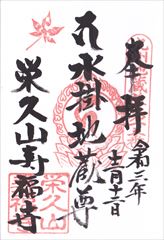 奉拝
令和三年
十一月十二日
水掛地蔵尊
栄久山寿福寺
栄久山